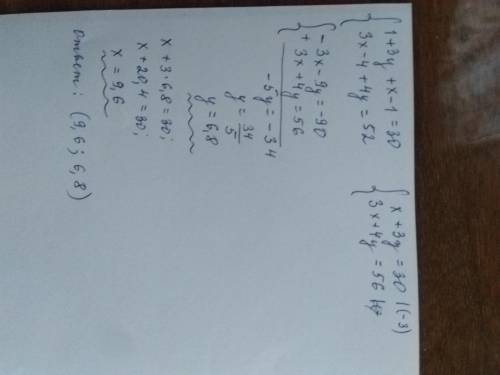 { 1+3y+x-1=30
3x-4+4y=52
{ x+3y=30 |(-3)
3x+4y=56
{ -3x-9y=-90
+ 3x+4y=56
-5y=-34
y=34/5
y=6,8
x+3·6,8=30;
x+20,4=30;
x=9,6
Ответ: (9,6; 6,8)